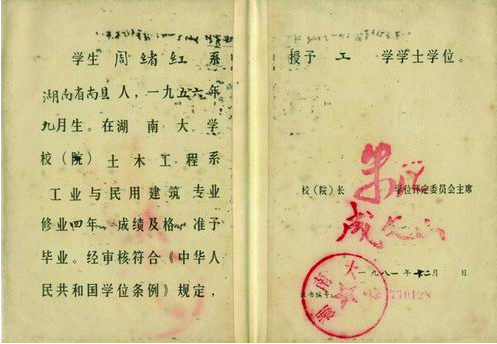 学生 周绪红 系
湖南省南县人，一九五六年
九月生。在湖南大学
校（院）土木工程系
工业与民用建筑专业
修业四年、成绩及格、准予
毕业。经审核符合《中华人
民共和国学位条例》规定，
授予 工 学学士学位。
校（院）长 学位评定委员会主席
成文山
一九八一年十二月 日
证书编号 770128
湖南大